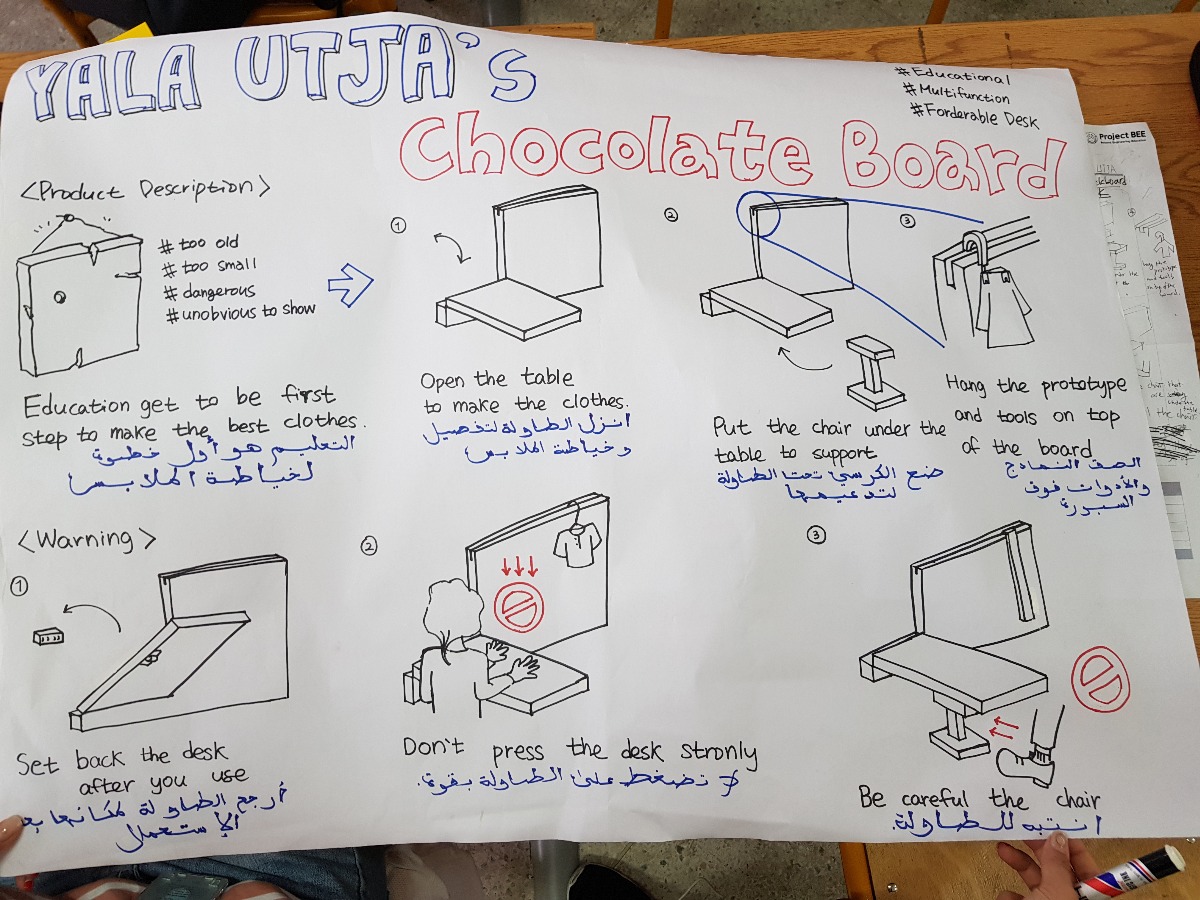 YALA UTJA's
Chocolate Board
# Educational
# Multifunction
# Forderable Desk
<Product Description>
# too old
# too small
# dangerous
# unobvious to show
Education get to be first
step to make the best clothes.
التعليم هو أول خطوة
لخياطة الملابس
①
Open the table
to make the clothes.
انزل الطاولة لتفصيل
وخياطة الملابس
②
Put the chair under the
table to support
ضع الكرسي تحت الطاولة
لتدعيمها
③
Hang the prototype
and tools on top
of the board
الصف النماذج
والأدوات فوق
السبورة
<Warning>
①
Set back the desk
after you use
أرجع الطاولة لمكانها بعد
الإستعمال
②
Don't press the desk stronly
لا تضغط على الطاولة بقوة.
③
Be careful the chair
انتبه للطاولة.
Project BEE